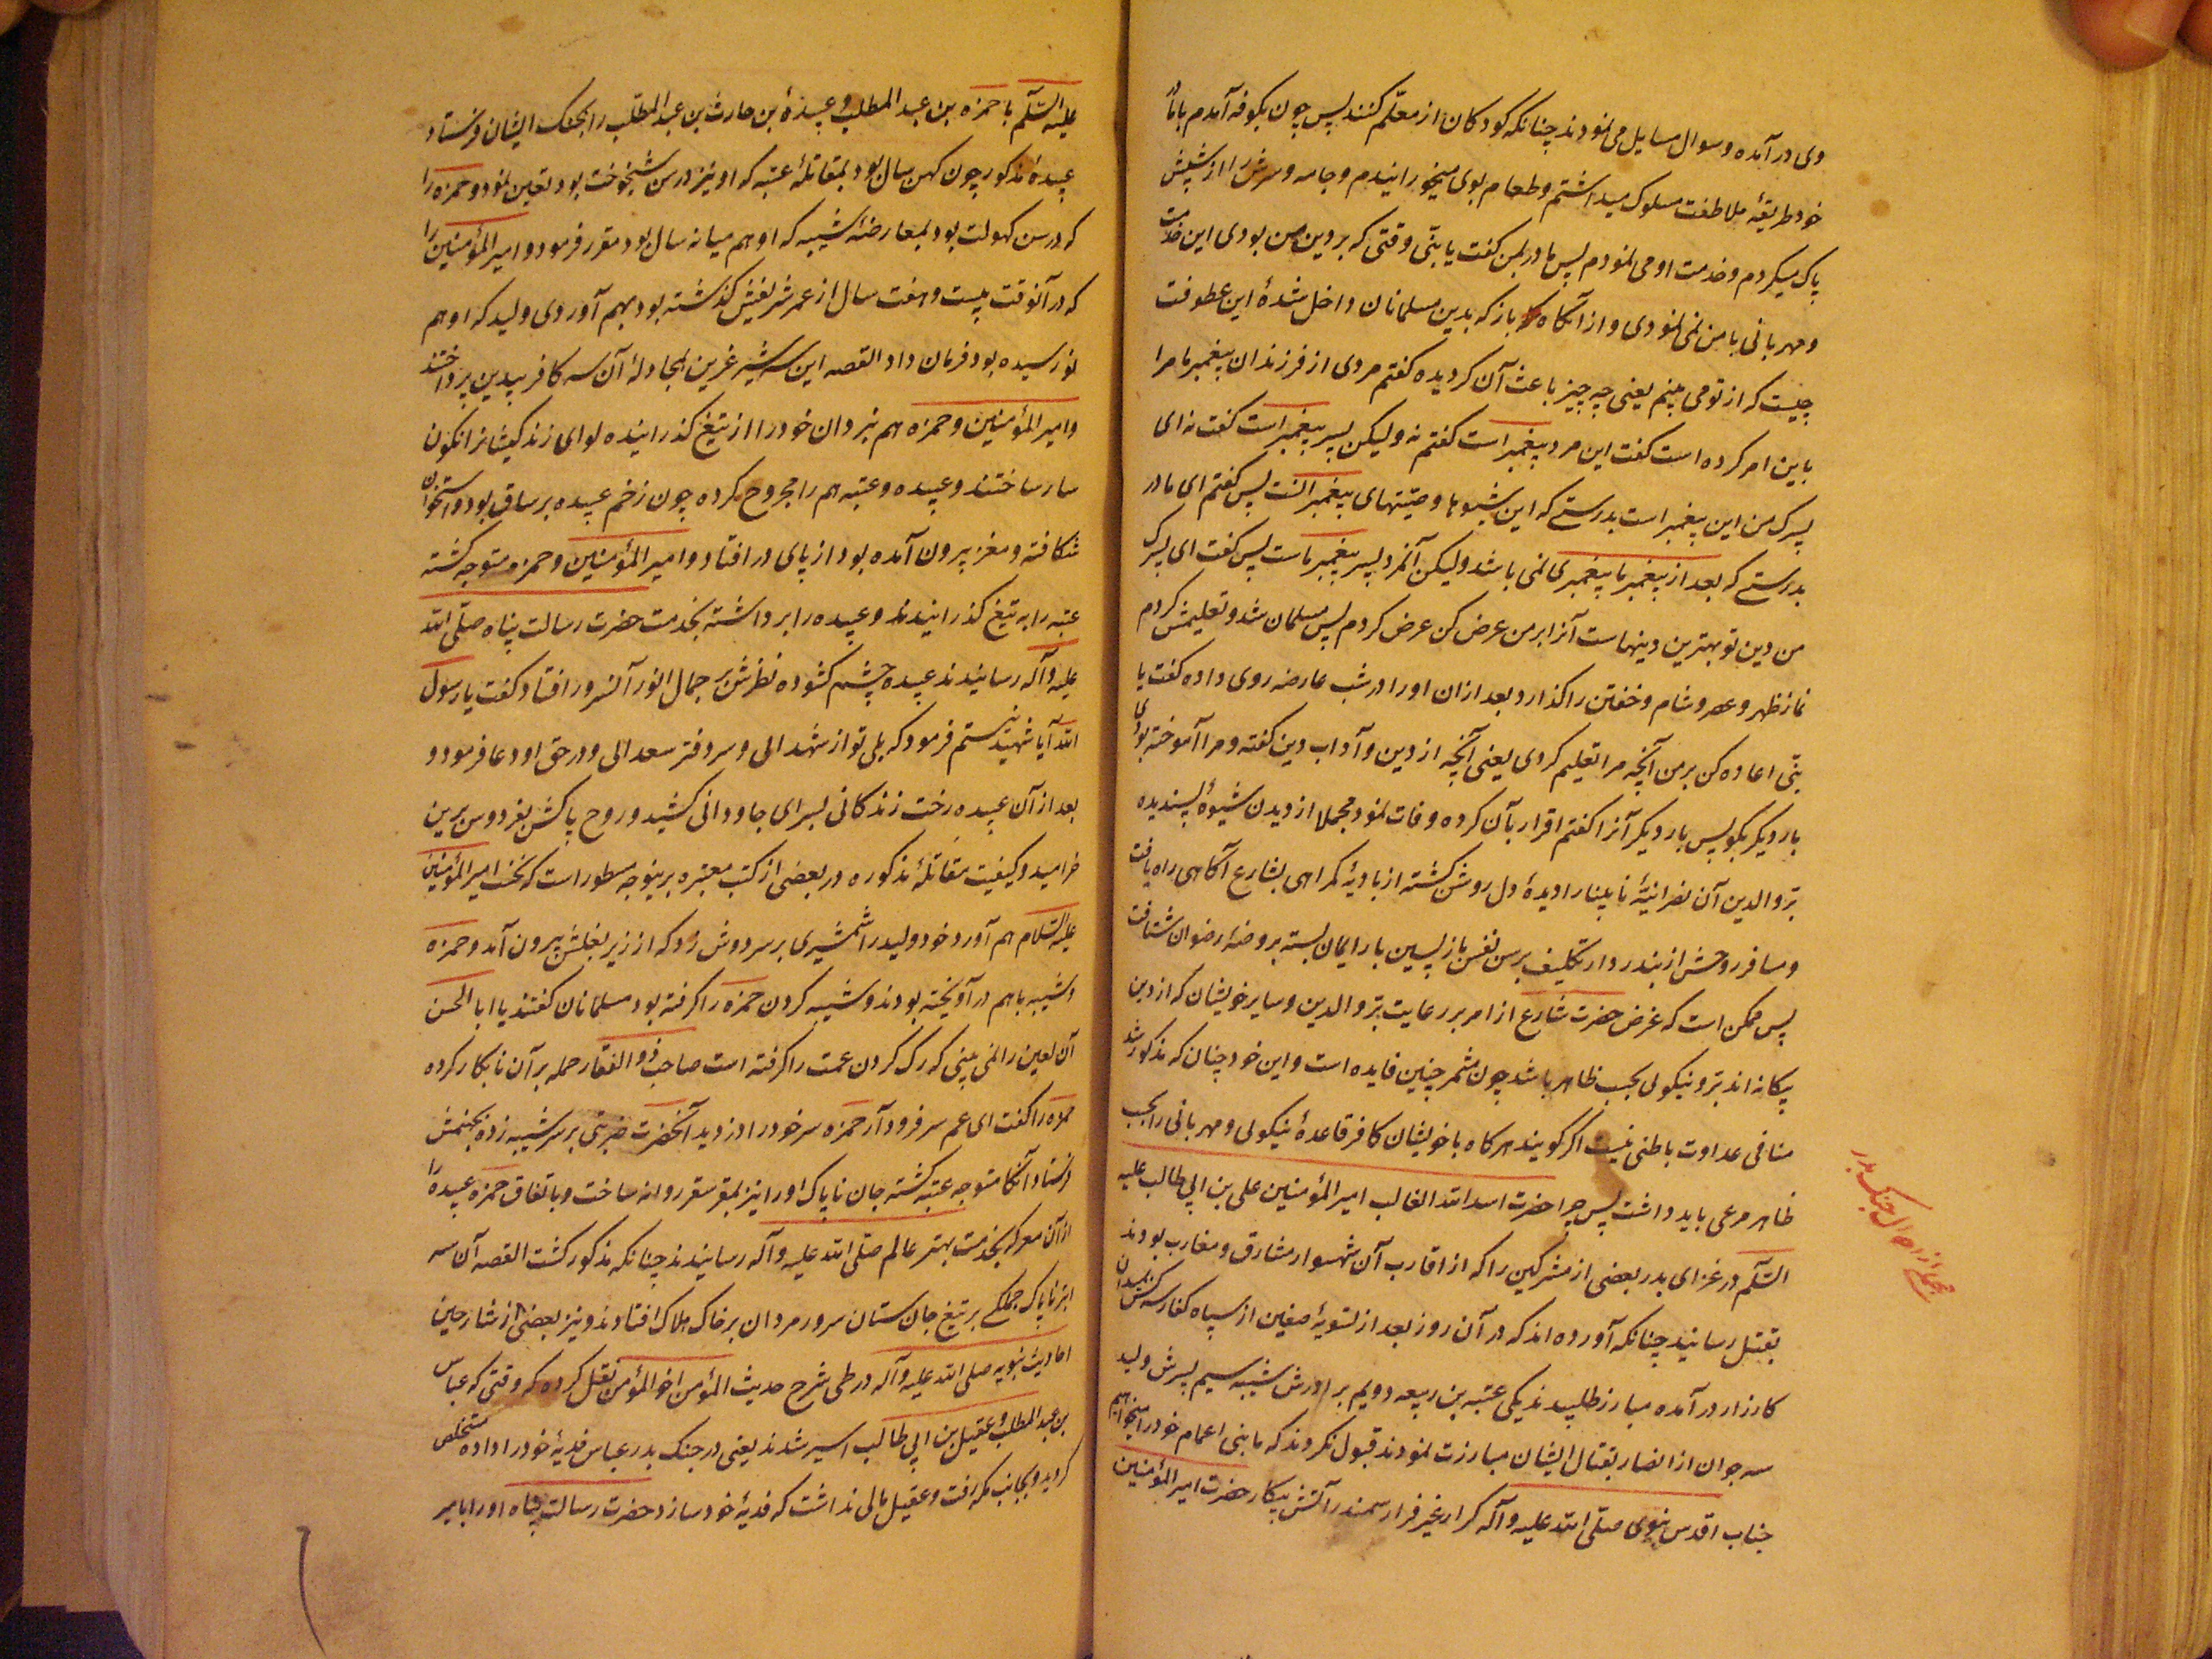 وی در آمده و سوال مسایل می نمودند چنانکه کودکان از معلّم کنند پس چون بکوفه آمدم با مادر
خود طریقهٔ ملاطفت مسلوک میداشتم و طعام بوی میخورانیدم و جامه و سرش را از شپش
پاک میکردم و خدمت او می نمودم پس مادر بمن کفت یا بنّی وقتی که بر دین من بودی این خدمت
و مهربانی با من نمی نمودی و از آنگاه باز که بدین مسلمانان داخل شدهٔ این عطوفت
چیست که از تو می بینم یعنی چه چیز باعث آن کردیده کفتم مردی از فرزندان پیغمبر ما مرا
باین امر کرده است کفت این مرد پیغمبر است کفتم نه ولیکن پسر پیغمبر است کفت نه ای
پسرک من این پیغمبر است بدرستی که این شیوها وصیّتهای پیغمبرانست پس کفتم ای مادر
بدرستی که بعد از پیغمبر ما پیغمبری نمی باشد ولیکن آنمرد پسر پیغمبر ماست پس کفت ای پسرک
من دین تو بهترین دینهاست آنرا بر من عرض کن عرض کردم پس مسلمان شد و تعلیمش کردم
نماز ظهر و عصر و شام و خفتن را کذارد بعد ازان او را در شب عارضه روی داده کفت یا
بنّی اعاده کن بر من آنچه مرا تعلیم کردی یعنی آنچه از دین و آداب دین کفته و مرا آموخته بودی
بار دیکر بکو پس بار دیکر آنرا کفتم اقرار بآن کرده وفات نمود مجملا از دیدن شیوهٔ پسندیده
برّ والدین آن نصرانیّهٔ نابینا را دیدهٔ دل روشن کشته از بادیهٔ کمراهی بشارع آکاهی راه یافت
و مسافر روحش از بندر دار تکلیف برسن نفس بازپسین بار ایمان بسته بروضهٔ رضوان شتافت
پس ممکن است که غرض حضرت شارع از امر بر رعایت برّ والدین و سایر خویشان که از دین
بیکانه اند برّ و نیکوئی بحسب ظاهر باشد چون مثمر چنین فایده است و این خود چنان که مذکور شد
منافی عداوت باطنی نیست اکر کویند هرکاه با خویشان کافر قاعدهٔ نیکوئی و مهربانی را بحسب
ظاهر مرعی باید داشت پس چرا حضرت اسد الله الغالب امیر المؤمنین علی بن ابی طالب علیه
السّلم در غزای بدر بعضی از مشرکین را که از اقارب آن شهسوار مشارق و مغارب بودند
بقتل رسانید چنانکه آورده اند که در آن روز بعد از تسویهٔ صفین از سپاه کفار سه کس بمیدان
کارزار در آمده مبارز طلبیدند یکی عتبه بن ربیعه دویم برادرش شیبه سیم پسرش ولید
سه جوان از انصار بقتال ایشان مبارزت نمودند قبول نکردند که ما بنی اعمام خود را میخواهیم
جناب اقدس نبوی صلّی الله علیه و آله کرار غیر فرار سمندر آتش پیکار حضرت امیر المؤمنین
مجملی از احوال جنک بدر
علیه السّلم با حمزه بن عبد المطلب و عبیدهٔ بن حارث بن عبد المطّلب را بجنک ایشان فرستاد
عبیدهٔ مذکور چون کهن سال بود بمقاتلهٔ عتبه که او نیز در سن شیخوخت بود تعین نمود و حمزه را
که در سن کهولت بود بمعارضهٔ شیبه که او هم میانه سال بود مقرر فرمود و امیر المؤمنین را
که در آنوقت بیست و هفت سال از عمر شریفش کذشته بود بهم آوردی ولید که او هم
نورسیده بود فرمان داد القصه این سه شیر غرین بمجادلهٔ آن سه کافر بیدین پرداختند
و امیر المؤمنین و حمزه هم نبردان خود را از تیغ کذرانیده لوای زندکیشانرا نکون
سار ساختند و عبیده و عتبه هم را مجروح کرده چون زخم عبیده بر ساق بود و استخوان
شکافته و مغز بیرون آمده بود از پای در افتاد و امیر المؤمنین و حمزه متوجه کشته
عتبه را به تیغ کذرانیدند و عبیده را برداشته بخدمت حضرت رسالت پناه صلّی الله
علیه و آله رسانیدند عبیده چشم کشوده نظرش بر جمال انور آنسرور افتاد کفت یا رسول
الله آیا شهید نیستم فرمود که بلی تو از شهدائی و سر دفتر سعدائی و در حق او دعا فرمود و
بعد از آن عبیده رخت زندکانی بسرای جاودانی کشید و روح پاکش بفردوس برین
خرامید و کیفیت مقاتلهٔ مذکوره در بعضی از کتب معتبره برینوجه مسطور است که نخست امیر المؤمنین
علیه السّلام هم آورد خود ولید را شمشیری بر سر دوش زد که از زیر بغلش بیرون آمد و حمزه
و شیبه باهم در آویخته بودند و شیبه کردن حمزه را کرفته بود مسلمانان کفتند یا ابا الحسن
آن لعین را نمی بینی که رک کردن عمت را کرفته است صاحب ذو الفقار حمله بر آن نابکار کرده
حمزه را کفت ای عم سر فرود آر حمزه سر خود را دزدید آنحضرت ضربتی بر سر شیبه زده بجهنمش
فرستاد آنکا متوجه عتبه کشته جان ناپاک او را نیز بمقر سقر روانه ساخت و باتفاق حمزه عبیده را
از آن معرکه بخدمت بهتر عالم صلّی الله علیه و آله رسانیدند چنانکه مذکور کشت القصه آن سه
ناپاک جملکی بر تیغ جان ستان سرور مردان بر خاک هلاک افتادند و نیز بعضی از شارحین
احادیث نبویه صلی الله علیه و آله در طی شرح حدیث المؤمن اخو المؤمن نقل کرده که وقتی که عباس
بن عبد المطلب و عقیل بن ابی طالب اسیر شدند یعنی در جنک بدر عباس فدیهٔ خود را داده مستخلص
کردید و بجانب مکه رفت و عقیل مالی نداشت که فدیهٔ خود سازد حضرت رسالت پناه او را با میر